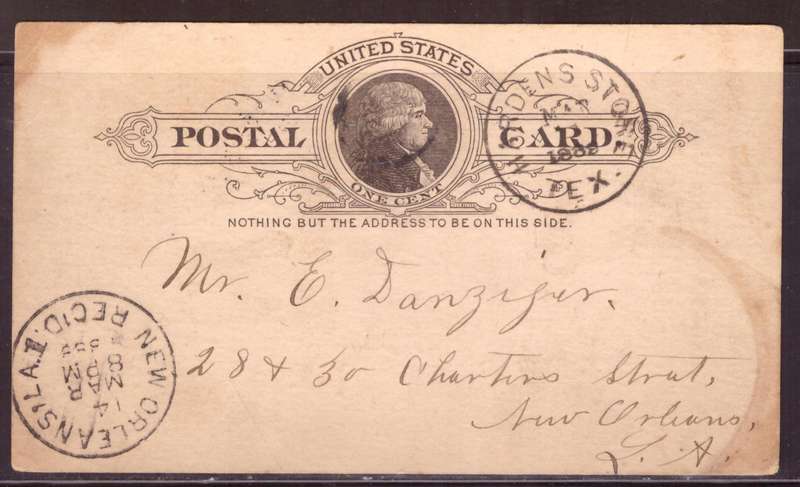 UNITED STATES
POSTAL CARD.
ONE CENT
NOTHING BUT THE ADDRESS TO BE ON THIS SIDE.
STORE
TEX.
Mr. E. Danziger.
28 & 30 Chartres Street,
New Orleans,
L.A.
NEW ORLEANS, LA.
REC'D.
14
MAR
8 PM